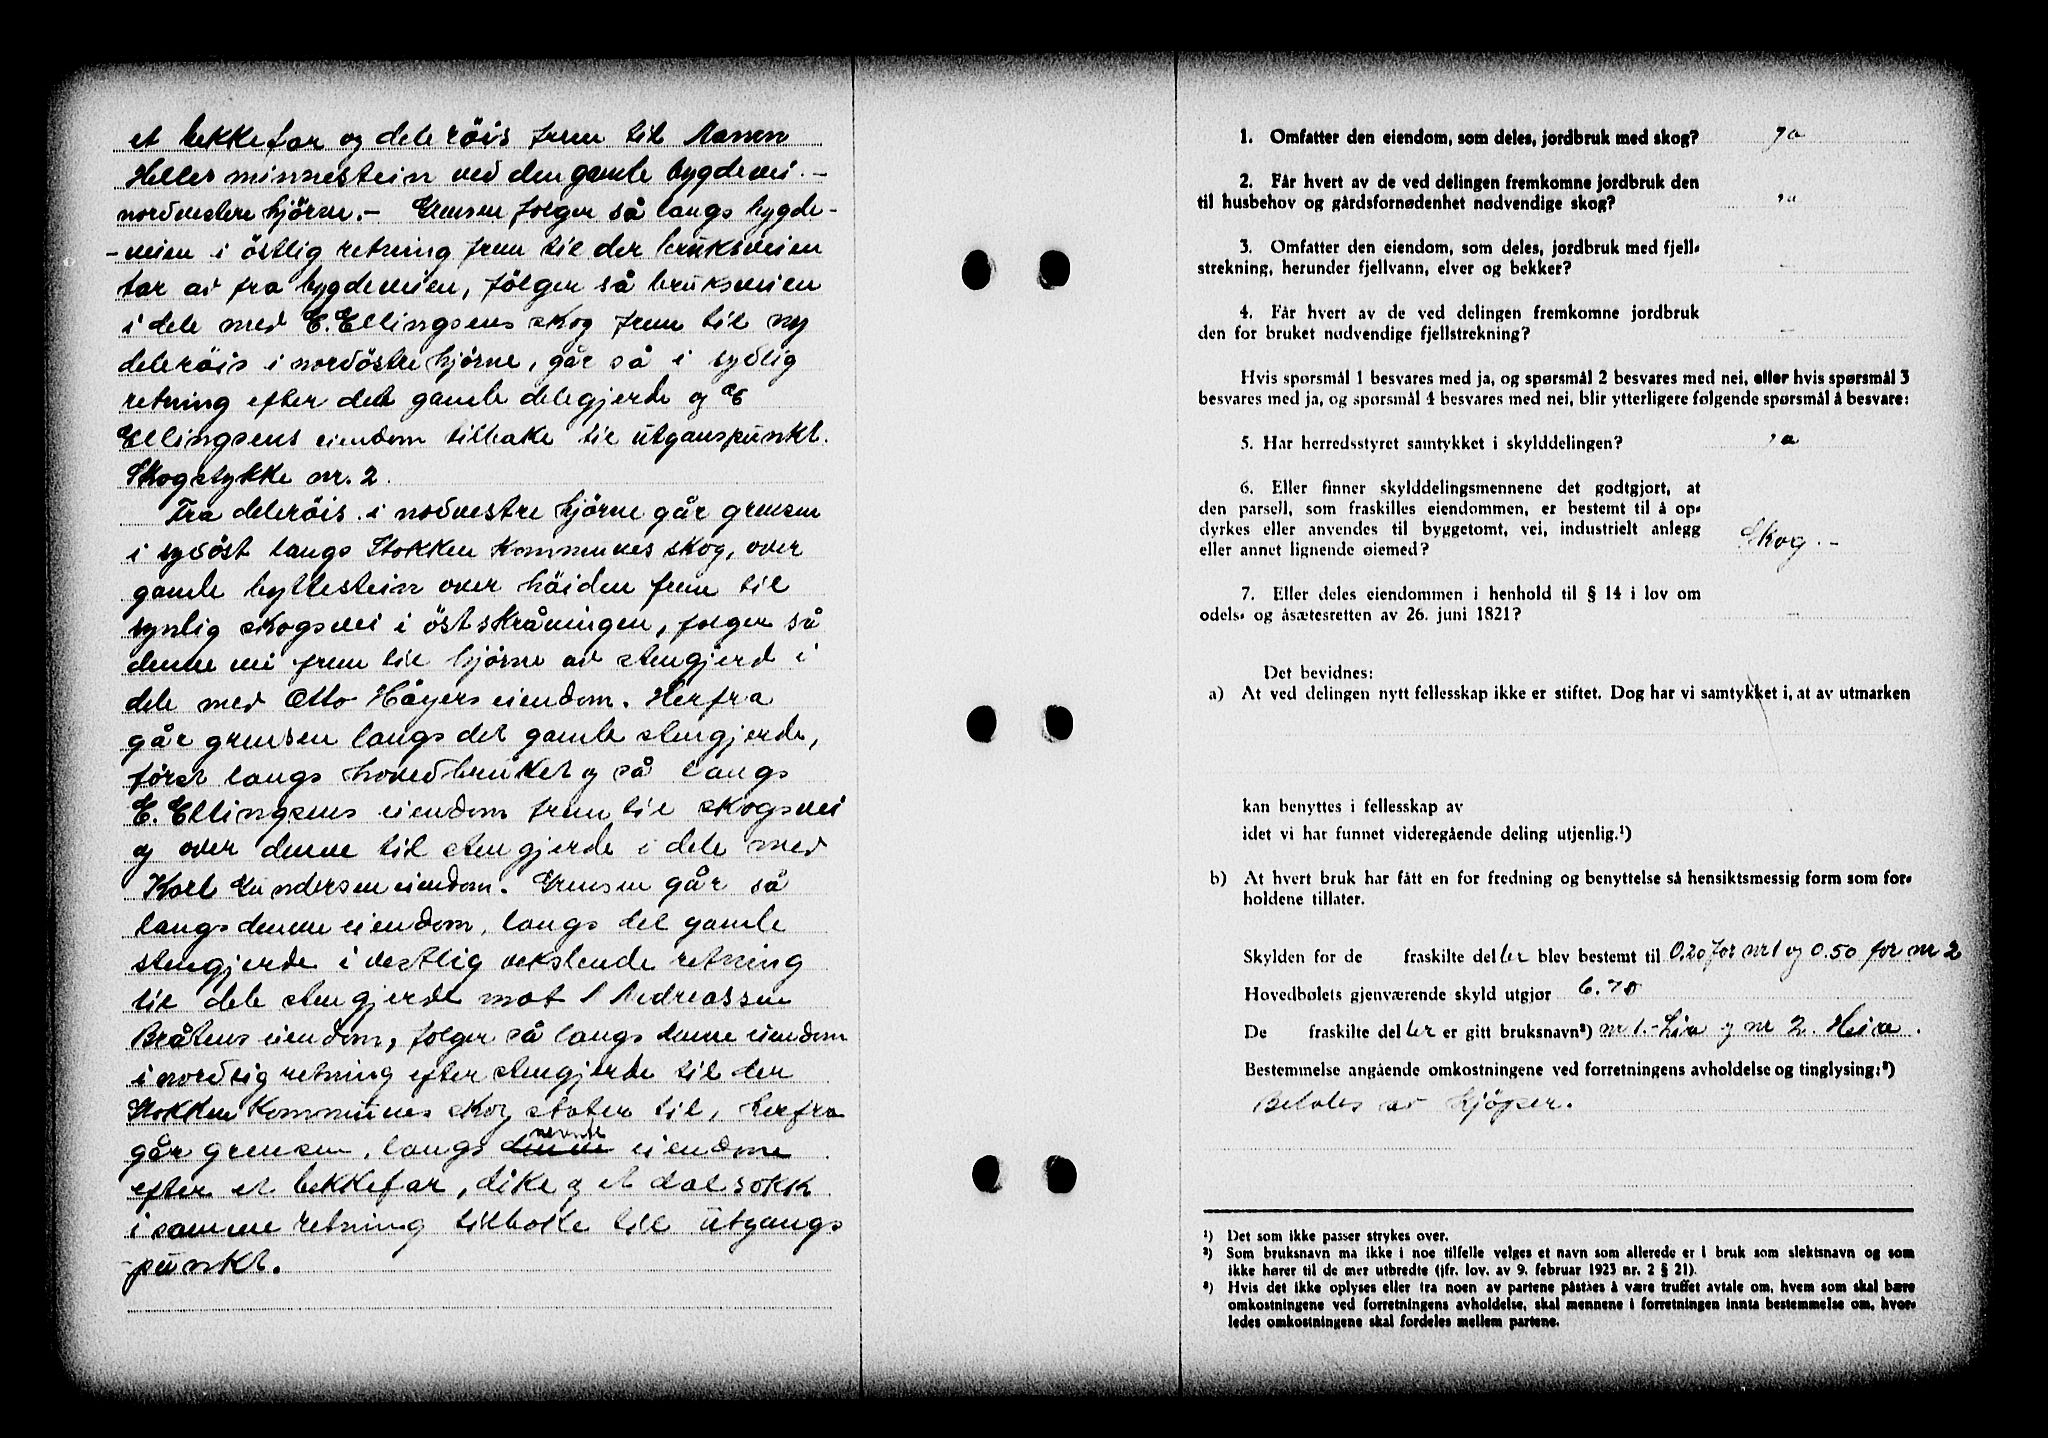 et bekkefar og delerøis frem til
Heller minnestein ved den gamle bygdevei. -
nordvestre hjörne. - Grensen folger så langs bygde-
-veien i östlig retning frem til der bruksveien
tar av fra bygdeveien, fölger så bruksveien
i dele med E. Ellingsens skog frem til ny
deleröis i nordöstre hjörne, går så i sydlig
retning efter det gamle delegjerde og E
Ellingsens eiendom tilbake til utganspunkt.
Skogstykke nr. 2.
Fra deleröis i nordvestre hjörne går grensen
i sydöst langs Stokken Kommunes skog, over
gamle byttestein over höiden frem til
synlig skogsvei i östskråningen, folger så
denne vei frem til hjörne av stengjerd i
dele med Otto Höyers eiendom. Herfra
går grensen langs det gamle stengjerde,
först langs hovedbruket og så langs
E. Ellingsens eiendom frem til skogsvei
og over denne til stengjerde i dele med
Karl Gundersen eiendom. Grensen går så
langs denne eiendom, langs det gamle
stengjerde i vestlig vekslende retning
til dele stengjerde mot Andreassen
Bråtens eiendom, folger så langs denne eiendom
i nordlig retning efter stengjerde til der
Stokken Kommunes skog støter til, herfra
går grensen, langs denne nevnte eiendom
efter et bekkefar, dike og et dalsökk
i samme retning tilbake till utgangs
-punkt.
1. Omfatter den eiendom, som deles, jordbruk med skog? ja
2. Får hvert av de ved delingen fremkomne jordbruk den
til husbehov og gårdsfornødenhet nødvendige skog? ja
3. Omfatter den eiendom, som deles, jordbruk med fjell-
strekning, herunder fjellvann, elver og bekker? -
4. Får hvert av de ved delingen fremkomne jordbruk
den for bruket nødvendige fjellstrekning? -
Hvis spørsmål 1 besvares med ja, og spørsmål 2 besvares med nei, eller hvis spørsmål 3
besvares med ja, og spørsmål 4 besvares med nei, blir ytterligere følgende spørsmål å besvare:
5. Har herredsstyret samtykket i skylddelingen? ja
6. Eller finner skylddelingsmennene det godtgjort, at
den parsell, som fraskilles eiendommen, er bestemt til å op-
dyrkes eller anvendes til byggetomt, vei, industrielt anlegg
eller annet lignende øiemed? Skog. -
7. Eller deles eiendommen i henhold til § 14 i lov om
odels- og åsætesretten av 26. juni 1821? -
Det bevidnes:
a) At ved delingen nytt fellesskap ikke er stiftet. Dog har vi samtykket i, at av utmarken
kan benyttes i fellesskap av
idet vi har funnet videregående deling utjenlig.¹)
b) At hvert bruk har fått en for fredning og benyttelse så hensiktsmessig form som for-
holdene tillater.
Skylden for de fraskilte deller blev bestemt til 0.20 for nr 1 og 0.50 for nr 2
Hovedbølets gjenværende skyld utgjør 6.78
De fraskilte deller er gitt bruksnavn²) nr 1. - Lia og nr 2. Heia.
Bestemmelse angående omkostningene ved forretningens avholdelse og tinglysing:³)
Betales av kjöper.
¹) Det som ikke passer strykes over.
²) Som bruksnavn må ikke i noe tilfelle velges et navn som allerede er i bruk som slektsnavn og som
ikke hører til de mer utbredte (jfr. lov. av 9. februar 1923 nr. 2 § 21).
³) Hvis det ikke oplyses eller fra noen av partene påståes å være truffet avtale om, hvem som skal bære
omkostningene ved forretningens avholdelse, skal mennene i forretningen innta bestemmelse om, hvor-
ledes omkostningene skal fordeles mellem partene.